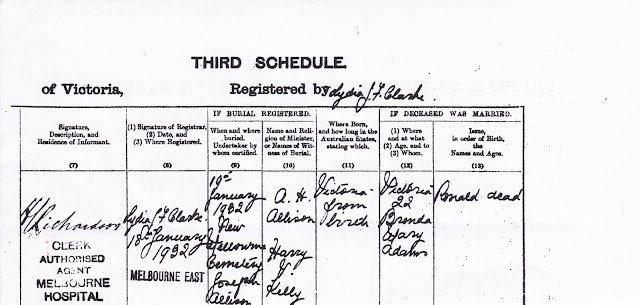 THIRD SCHEDULE.
of Victoria, Registered by Lydia J. F. Clarke.
IF BURIAL REGISTERED. IF DECEASED WAS MARRIED.
Signature,
Description, and
Residence of Informant.
(1) Signature of Registrar,
(2) Date, and
(3) Where Registered.
When and where
buried.
Undertaker by
whom certified.
Name and Reli-
gion of Minister,
or Names of Wit-
ness of Burial.
Where Born,
and how long in the
Australian States,
stating which.
(1) Where
and at what
(2) Age, and to
(3) Whom.
Issue,
in order of Birth,
the
Names and Ages.
(7) (8) (9) (10) (11) (12) (13)
Richardson
CLERK
AUTHORISED
AGENT
MELBOURNE
HOSPITAL
Lydia J F Clarke.
18th January
1932
MELBOURNE EAST
19th
January
1932
New
Melbourne
Cemetery
Joseph
Allison
A. H.
Allison
Harry
J.
Kelly
Victoria
from
birth
Victoria
22
Brenda
Mary
Adams
Ronald dead